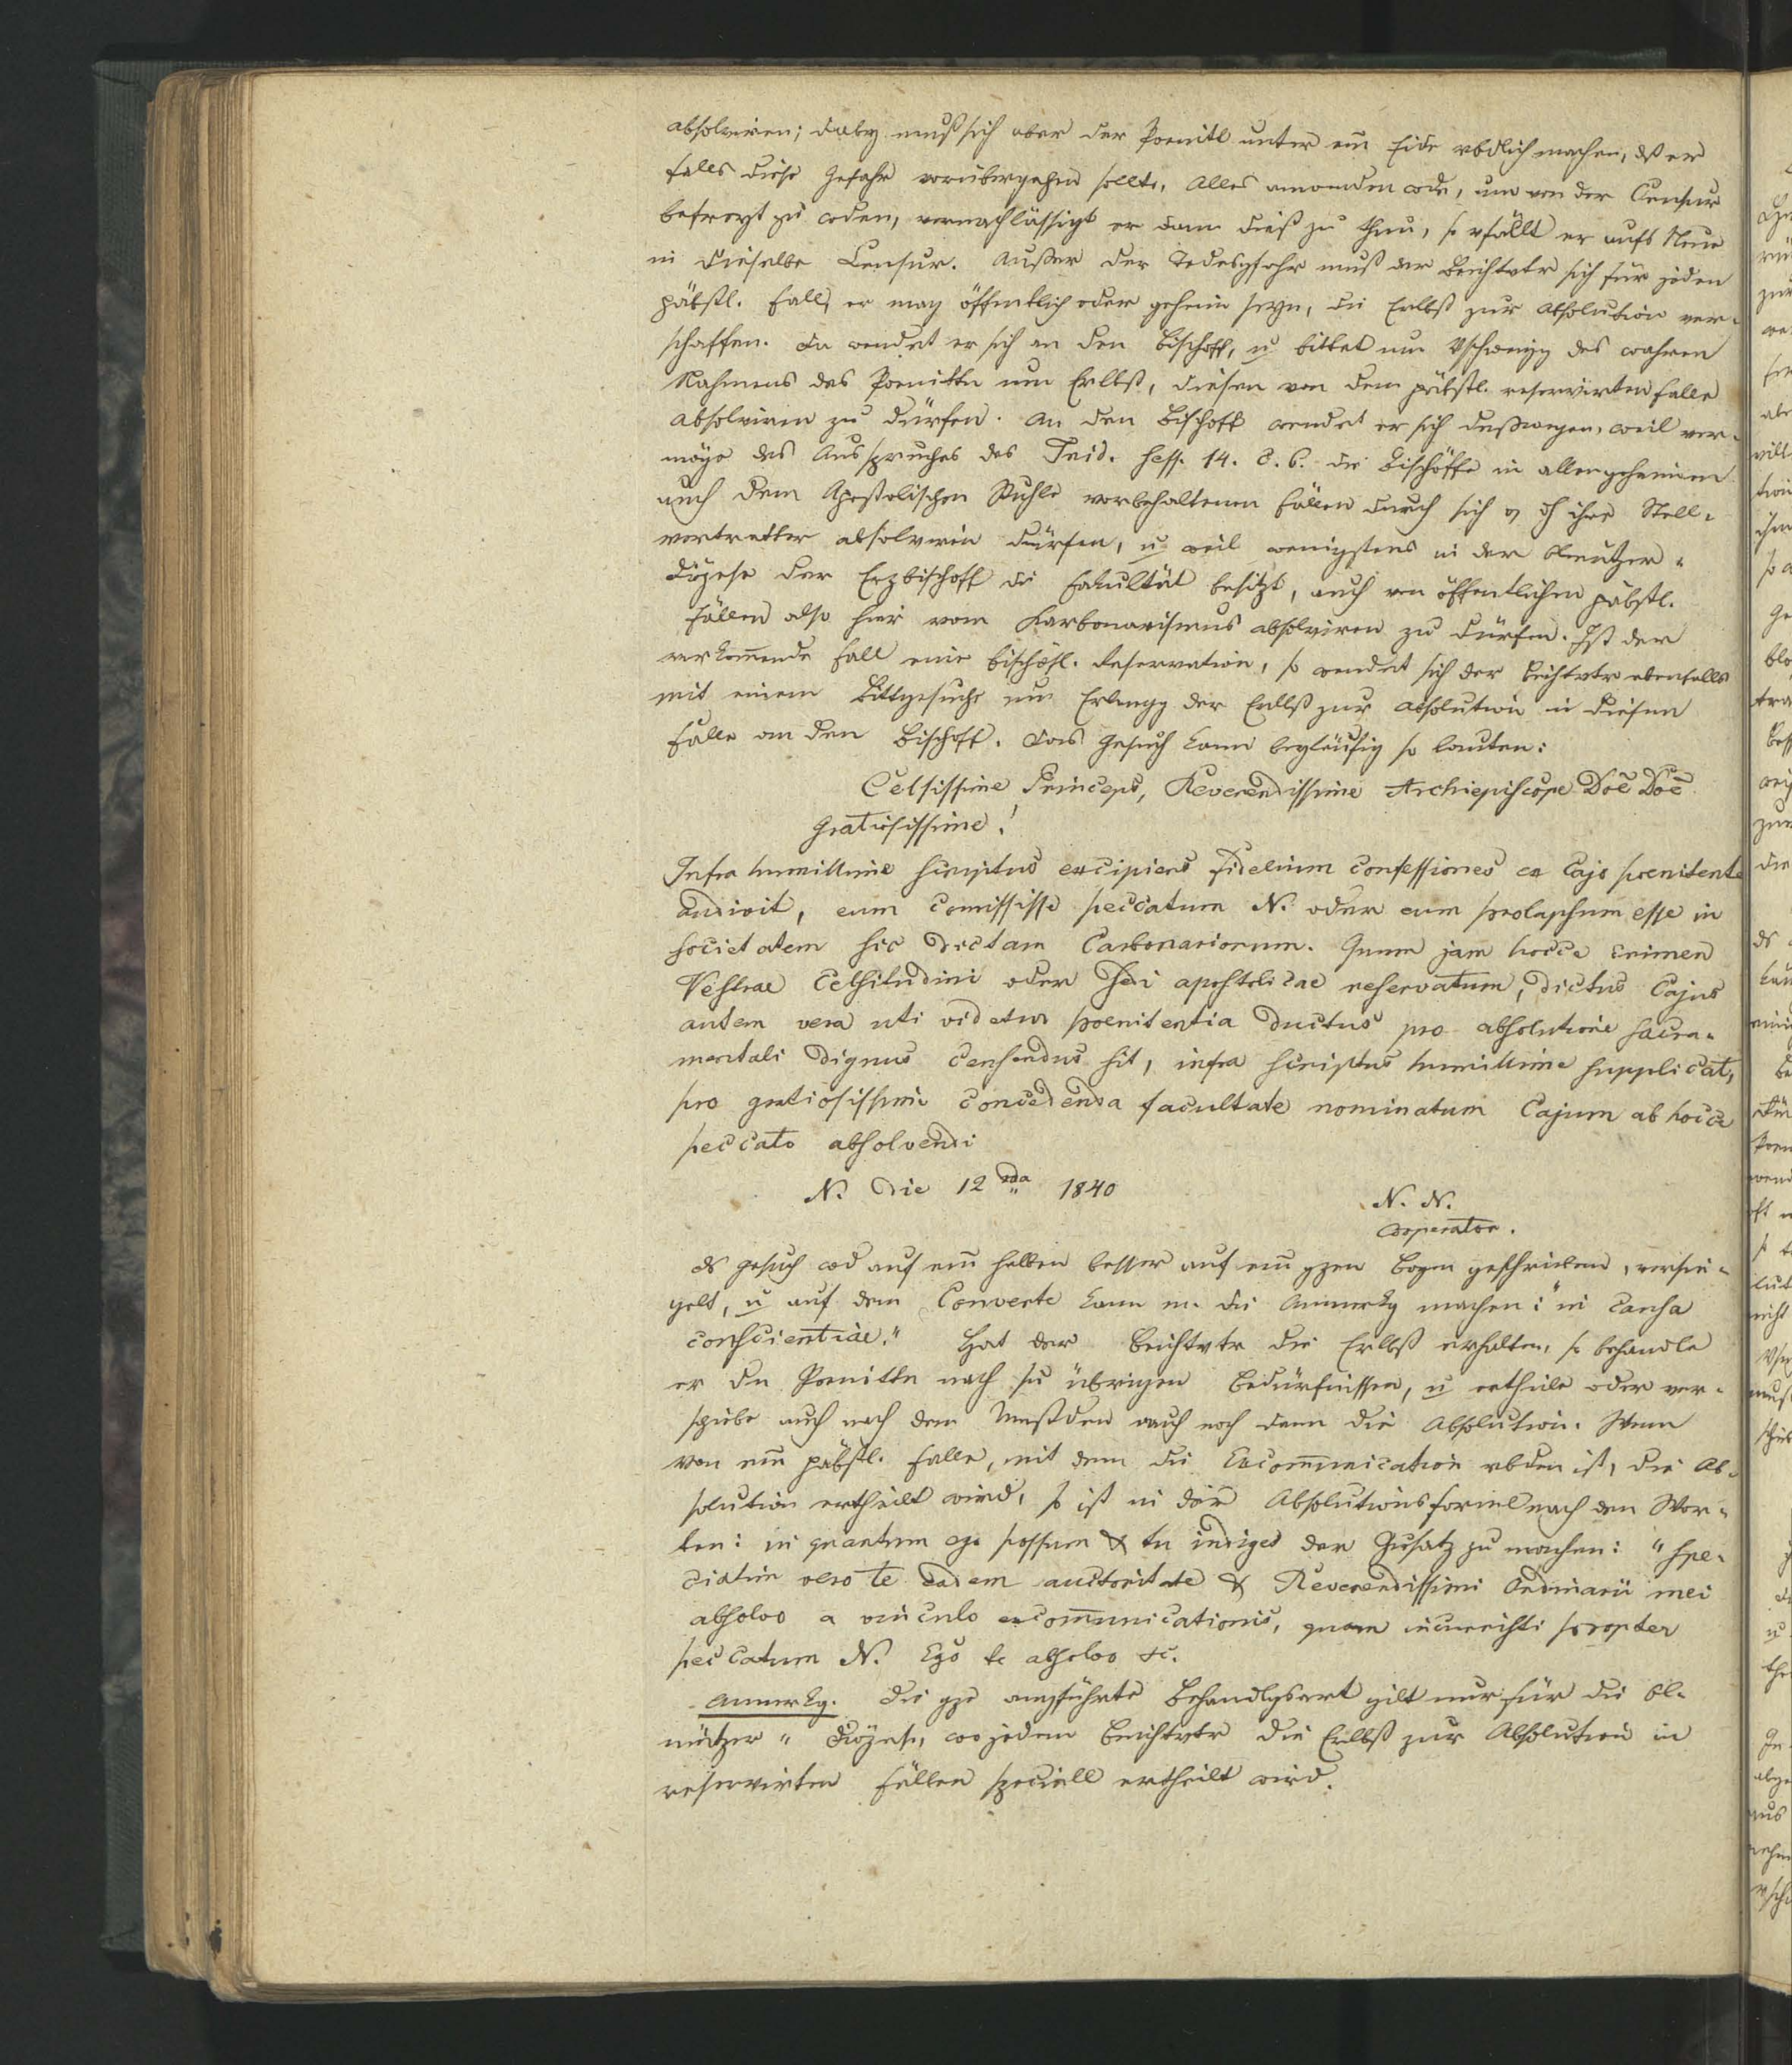 absolviren; dabey muß sich aber der Poenitt unter ein Eide vbdlich machen, dß er
falls diese Gefahr vorübergehen sollte, Alles anwenden wde, um von der Censur
befreyt zu weden, vernachlässigt er dann dieß zu thun, so vfällt er aufs Neue
in dieselbe Censur. Außer der Todesgfahr muß der Beichtvtr sich für jeden
päbstl. Fall, er mag öffentlich oder geheim seyn, die Erlbß zur Absolution ver-
schaffen. Da wendet er sich an den Bischoff, u bittet um Vschweigg des wahren
Nahmens des Poenittn um Erlbß, diesen von dem päbstl. reservirten Falle
absolviren zu dürfen. An den Bischoff wendet er sich deßwegen, weil ver-
möge des Ausspruches des Trid. Sess. 14. c. 6. die Bischöffe in allen geheimen
auch dem Apostolischen Stuhle vorbehaltenen Fällen durch sich dh ihre Stell-
vertretter absolviren dürfen, u weil wenigstens in der Olmützer-
Diözese der Erzbischoff die Fakultät besitzt, auch von öffentlichen päbstl.
Fällen also hier vom Karbonarismus absolviren zu dürfen. Ist der
vorkom̄ende Fall eine bischöfl. Reservation, so wendet sich der Beichtvtr ebenfalls
mit einem Bittgesuche um Erlangg der Erlbß zur Absolution in diesem
Falle an den Bischoff. Das Gesuch kann beyläufig so lauten:
Celsissime Princeps, Reverendissime Archiepiscope Doē Doē
Gratiosissime!
Infra humillime scriptus excipiens fidelium confessiones ex Cajo poenitente
audivit, eum comississe peccatum N. oder eum prolapsum esse in
societatem sic dictam Carbonariorum. Quum jam hocce crimen
Vestrae Celsitudini oder Sedi apostolicae reservatum, dictus Cajus
autem vera uti videtur poenitentia ductus pro absolutione sacra-
mentali dignus censendus sit, infra scriptus humillime supplicat,
pro gratiosissime concedenda facultate nominatum Cajum ab hocce
peccato absolvendi
N. die 12 1840
N. N.
Cooperator.
ds Gesuch wd auf ein̄ halben besser auf ein̄ gzen Bogen geschrieben, versie-
gelt, u auf dem Converte kann m. die Anmerkg machen: "in causa
conscientiae." Hat der Beichtvtr die Erlbß erhalten, so behandle
er dn Poenittn nach sn übrigen Bedürfnissen, u ertheile oder ver-
schiebe auch nach den Umstden auch noch dann die Absolution. Wenn
von ein̄ päbstl. Falle, mit dem die Excom̄unication vbden ist, die Ab-
solution ertheilt wird, so ist in der Absolutionsformel nach den Wor-
ten: in quantum ego possum & tu indiges der Zusatz zu machen: "spe-
ciatim vero te eadem auctoritate & Reverendissimi Ordinarii mei
absolvo a vinculo excom̄unicationis, quam incurristi propter
peccatum N. Ego te absolvo &c.
Anmerkg. Die gze angführte Behandlgsart gilt nur für die Ol-
mützer - Diözese, wo jedem Beichtvtr die Erlbß zur Absolution in
reservirten Fällen speciell ertheilt wird.